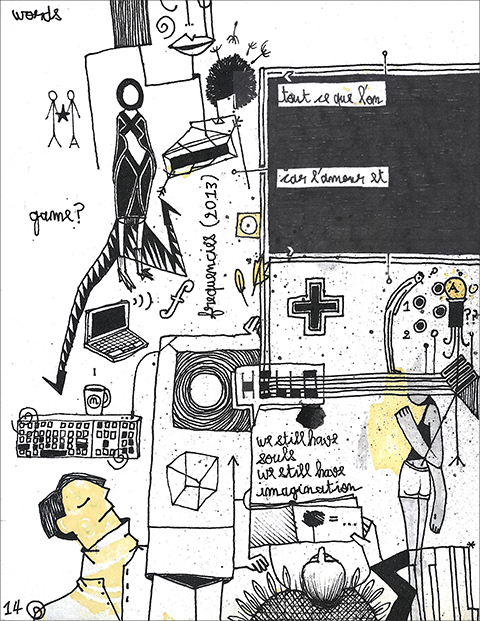 words
tout ce que l'on
car l'amour et
game?
frequencies (2013)
A
1
2
??
we still have
souls
we still have
imagination
= ...
14